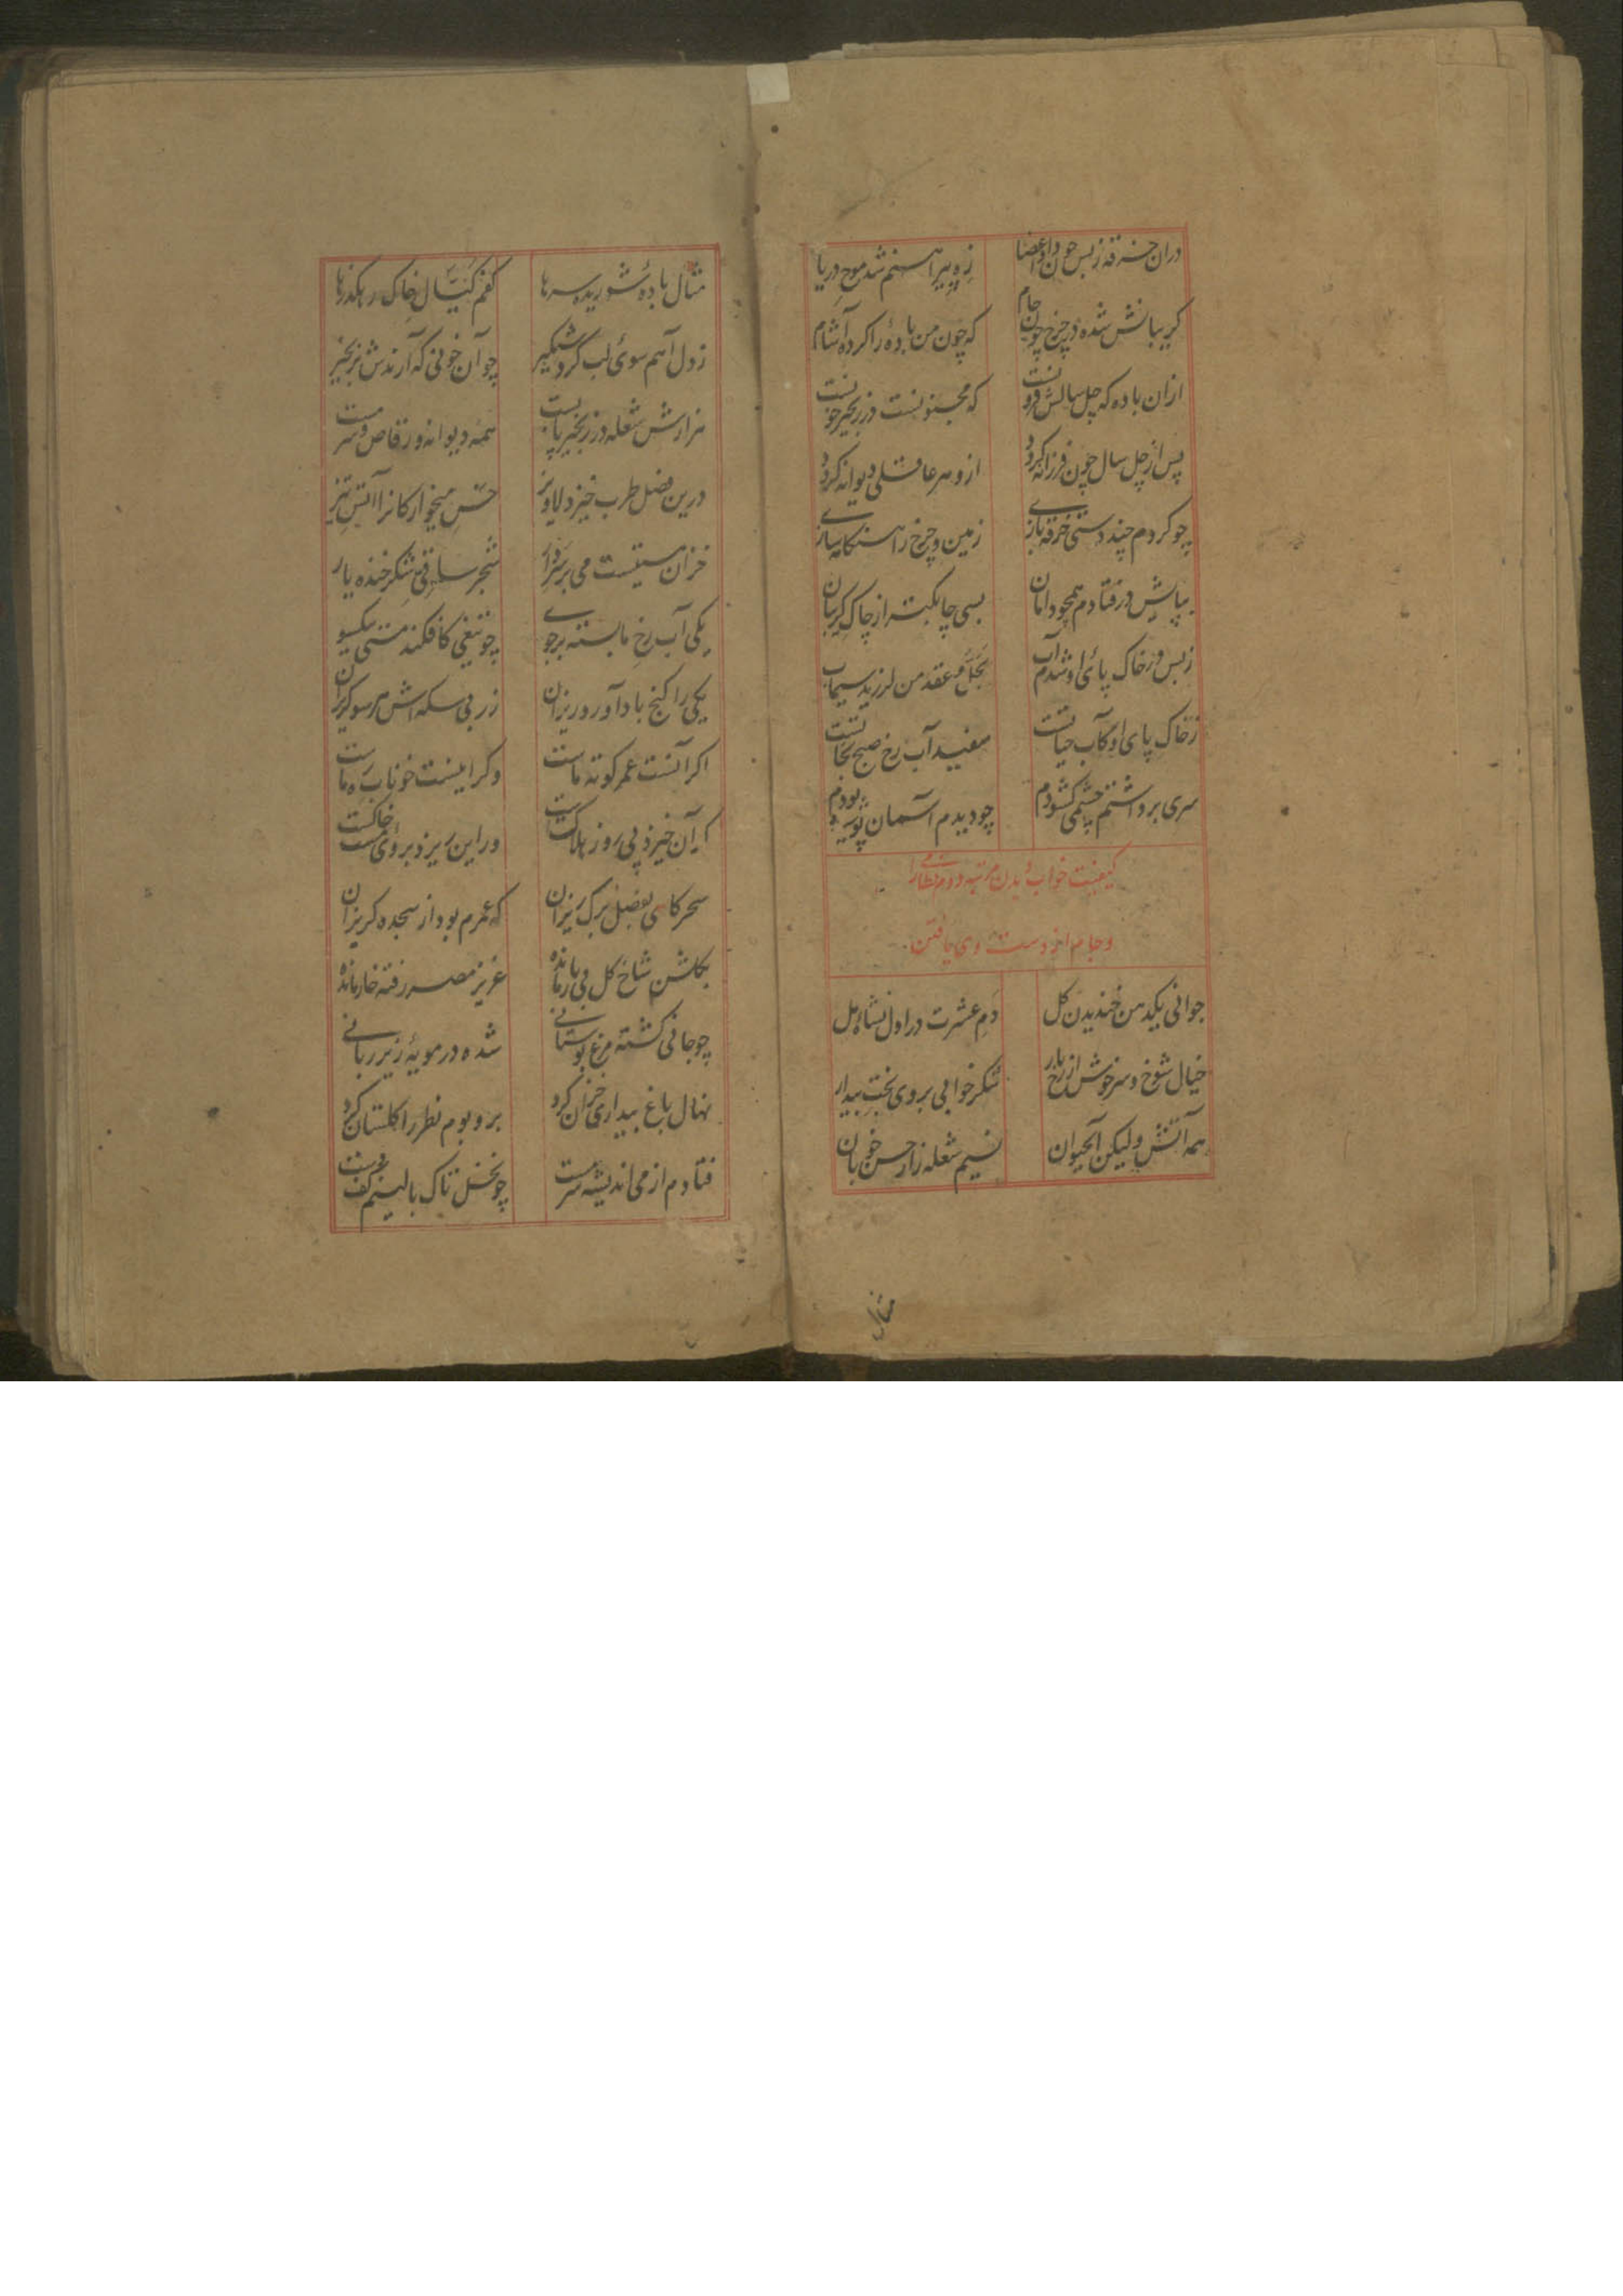 دران خرقه ز بس چون داد اعضا زه پیراهنم شد موج دریا
گریبانش شده در چرخ چون جام که چون من باده را کرده آشام
ازان باده که چل سالش فرو که مجنونست در زنجیر
پس از چل سال چون فرزانه کردد ازو هر عاقلی دیوانه کردد
چو کردم چند دستی خرقه بازی زمین و چرخ را هنکامه سازی
بپایش در فتادم همچو دامان بسی چابکتر از چاک کریبان
ز بس در خاک پای او شدم آب عقد من لرزید سیماب
ز خاک پای او کآب حیاتست سفید آب رخ صبح نجاتست
سری برداشتم چشمی کشودم چو دیدم آسمان بودم
کیفیت خواب دیدن مرتبه دوم نظامی را
و جام از دست وی یافتن
جوانی یکدمن خندیدن کل دم عشرت در اول نشاه مل
خیال شوخ و سرخوش از رخ یار شکر خوابی بروی بخت بیدار
همه آتش ولیکن آبحیوان نسیم شعله زار حسن خوبان
مثال
مثال باده شوریده سرها کفم کیال خاک رهکذرها
ز دل آهم سوی لب کرد شبکیر چو آن خونی که آرندش بزنجیر
هزارش شعله در زنجیر پابست همه دیوانه و رقاص و سرمست
درین فصل طرب خیز دلاویز خس میخوارکانرا آتش تیز
خزان مستیست می بر سر شجر ساقی شکر خنده یار
یکی آب رخ ما بسته بر جوی چو تیغی کافکند مستی بیکسو
یکی را کنج باد آورد ریزان زر بی سکه اش هر سو کریزان
اکر آنست عمر کوته ماست وکر اینست خوناب ره ماست
کر آن خیزد پی روز هلاکست ور این ریزد بروی خاکست
سحرکاهی بفصل برک ریزان که عمرم بود از سجده کریزان
بکلشن شاخ کل بی بار مانده عزیز مصر رفته خار مانده
چو جانی کشته مرغ بوستانی شده در مویه زیر زبانی
نهال باغ بیداری خزان کرد بر و بوم نظر را کلستان کرد
فتادم از می اندیشه سرمست چو نخل تاک بالینم کف دست